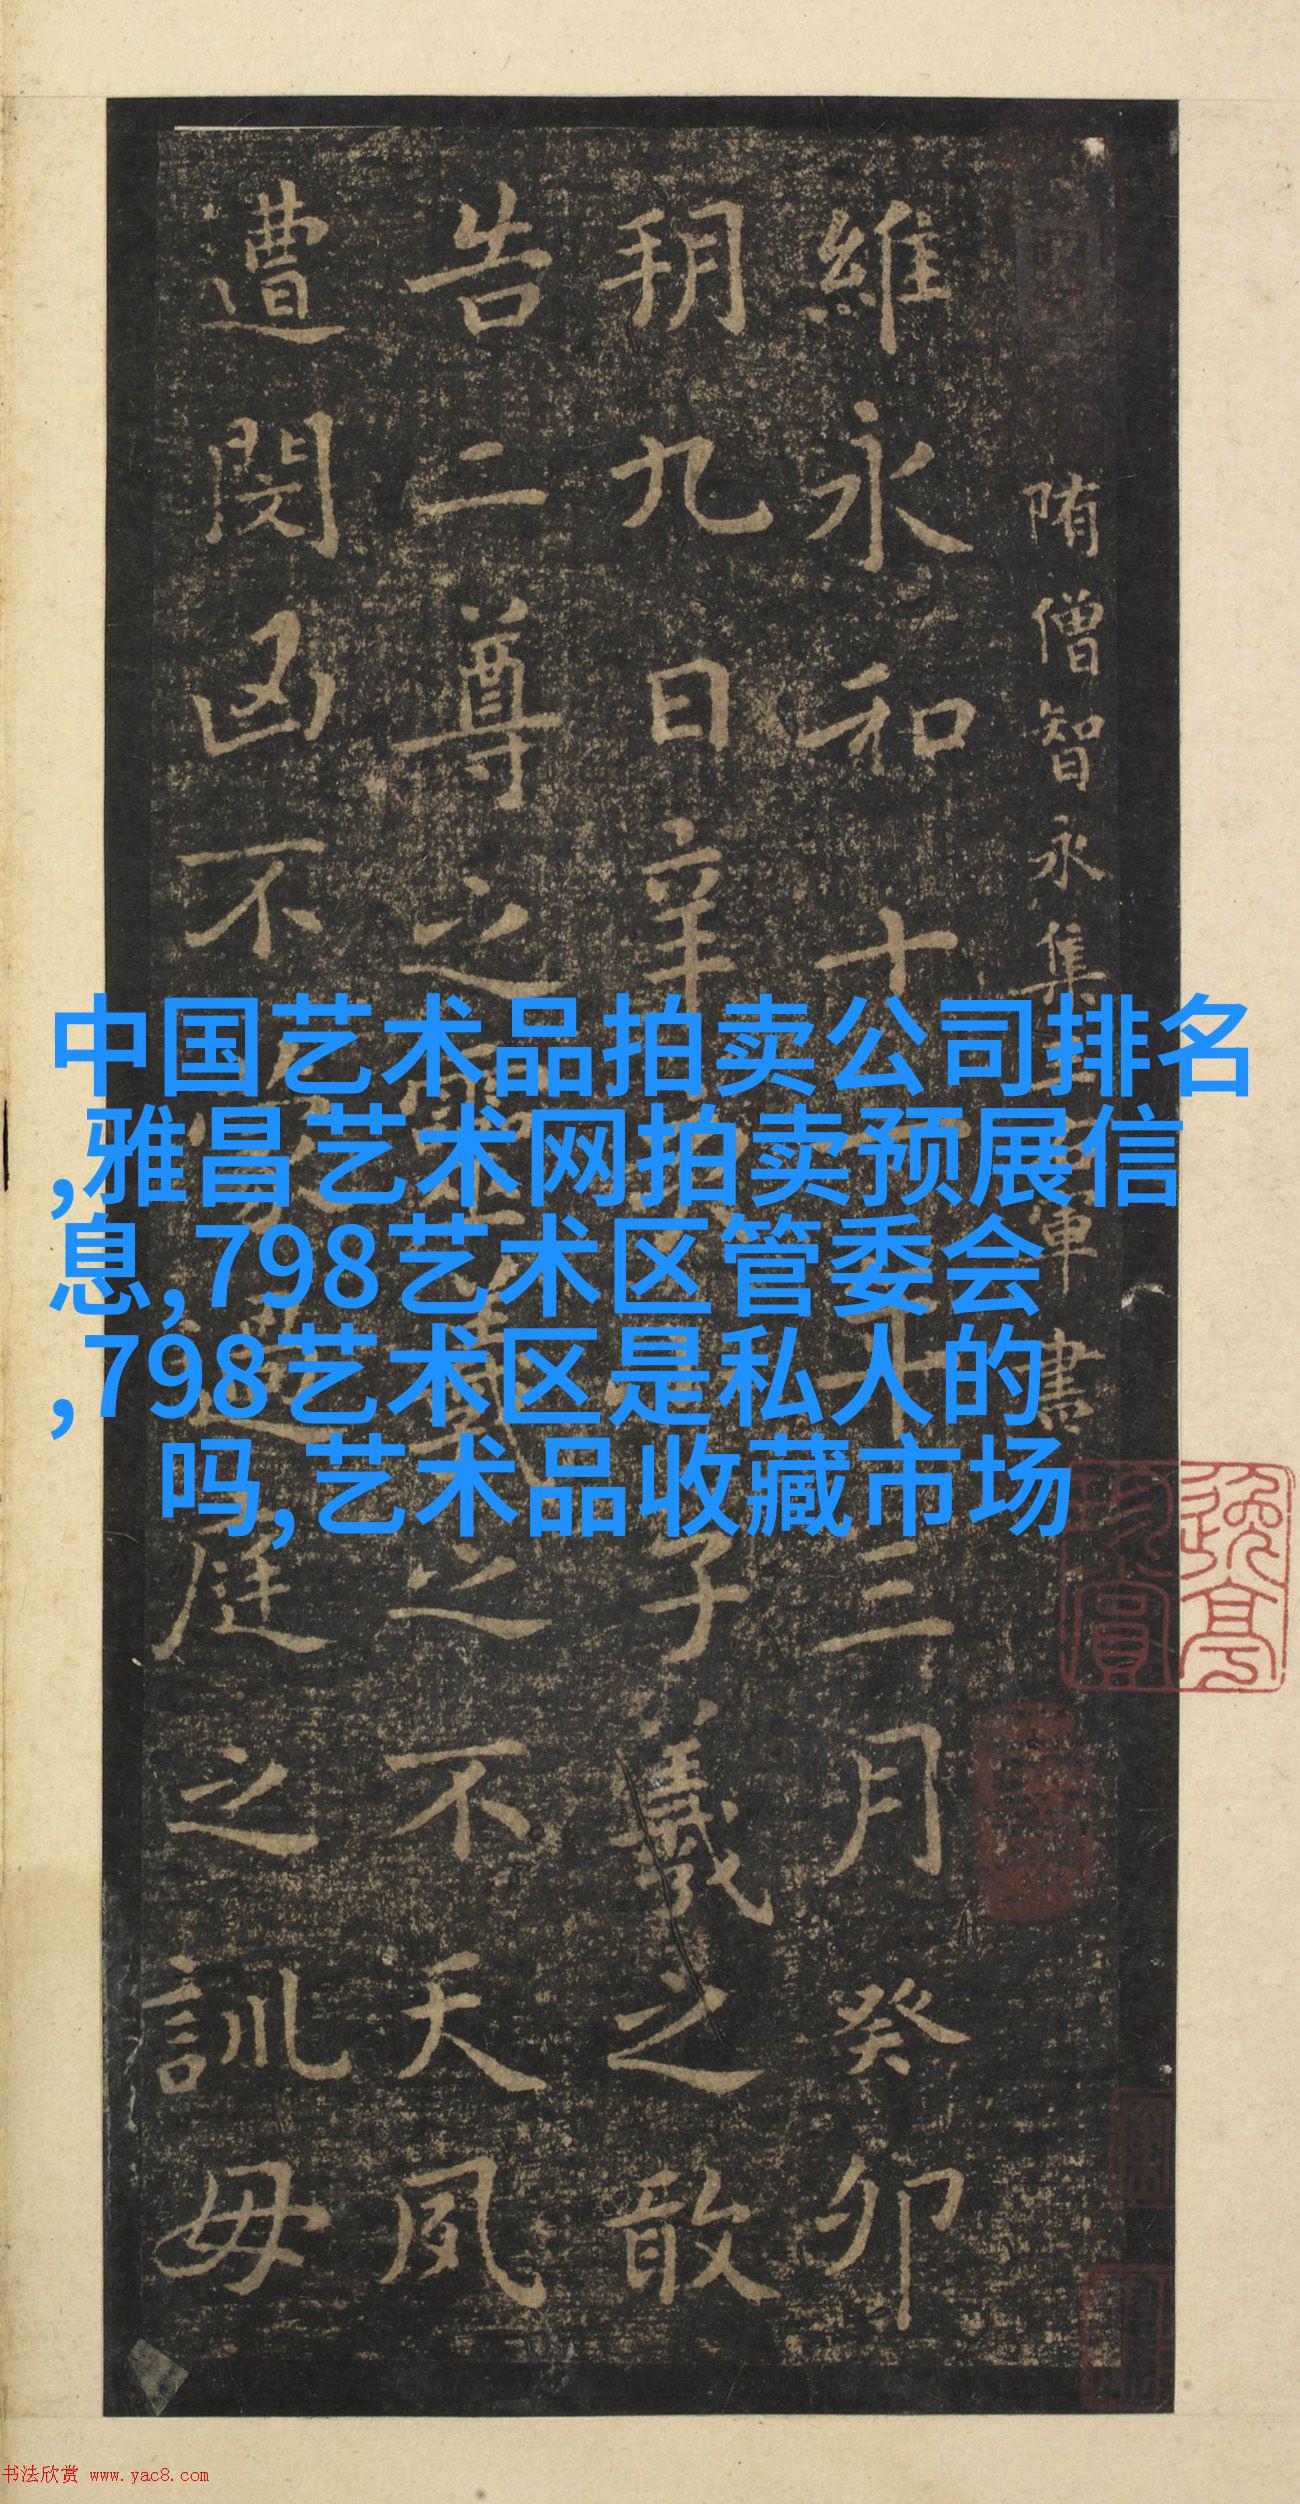 隋僧智永集王右軍書
維永和十年三月癸卯
朔九日辛子羲之敢
告二尊之靈羲之不天夙
遭閔凶不過庭之訓毋
中国艺术品拍卖公司排名
,雅昌艺术网拍卖预展信
息,798艺术区管委会
,798艺术区是私人的
吗,艺术品收藏市场
书法欣赏 www.yac8.com